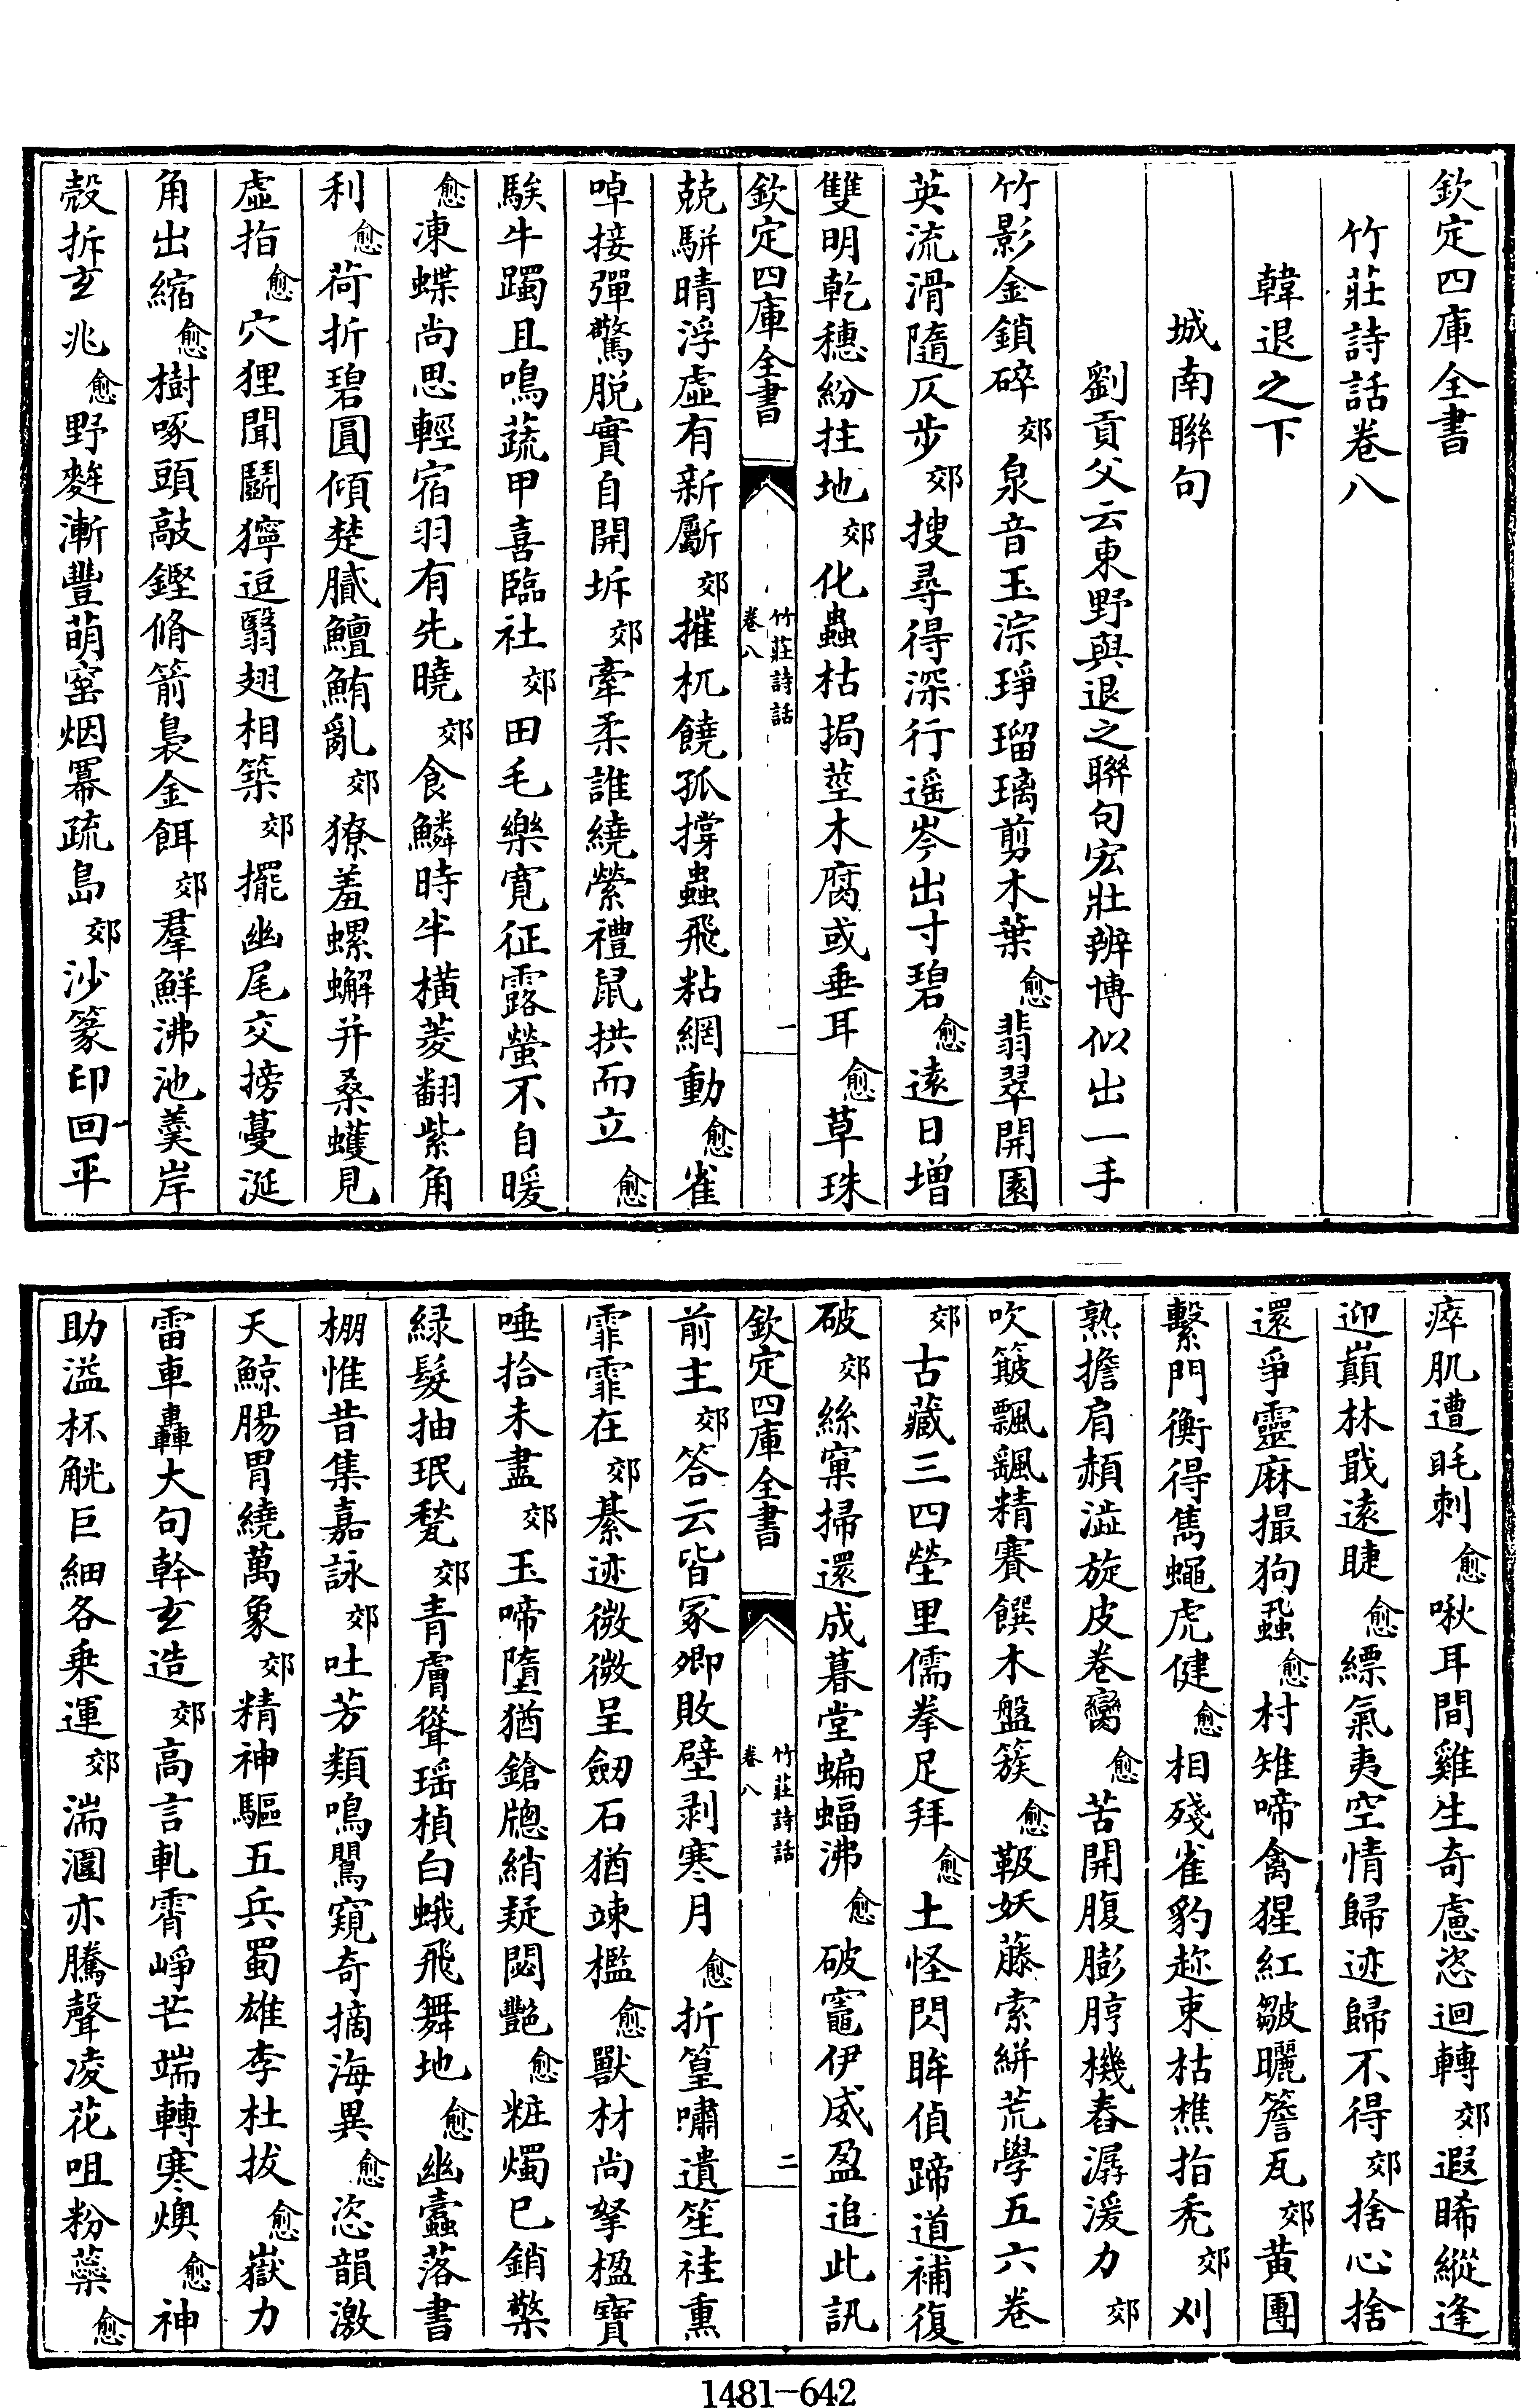 欽定四庫全書
竹莊詩話卷八
韓退之下
城南聯句
劉貢父云東野與退之聯句宏壯辨博似出一手
竹影金鎖碎郊泉音玉淙琤瑠璃剪木葉愈翡翠開園
英流滑隨仄步郊搜尋得深行遥岑出寸碧愈遠日增
雙明乾穗紛拄地郊化蟲枯挶莖木腐或垂耳愈草珠
欽定四庫全書
竹莊詩話
卷八
一
兢駢睛浮虛有新斸郊摧杌饒孤撐蟲飛粘網動愈雀
啅接彈驚脱實自開坼郊牽柔誰繞縈禮鼠拱而立愈
駭牛躅且鳴蔬甲喜臨社郊田毛樂寛征露螢不自暖
愈凍蝶尚思輕宿羽有先曉郊食鱗時半横菱翻紫角
利愈荷折碧圓傾楚膩鱣鮪亂郊獠羞螺蠏并桑蠖見
虛指愈穴狸聞鬭獰逗翳翅相築郊擺幽尾交搒蔓涎
角出縮愈樹啄頭敲鏗脩箭裊金餌郊羣鮮沸池羮岸
殻坼玄兆愈野麰漸豐萌窑烟羃疏島郊沙篆印回平
瘁肌遭眊刺愈啾耳間雞生奇慮恣迴轉郊遐睎縱逢
迎巔林戢遠睫愈縹氣夷空情歸迹歸不得郊捨心捨
還爭靈麻撮狗蝨愈村雉啼禽猩紅皺曬簷瓦郊黄團
繫門衡得雋蠅虎健愈相殘雀豹趂束枯樵指秃郊刈
熟擔肩頳澁旋皮卷臠愈苦開腹膨脝機舂潺湲力郊
吹簸飄颻精賽饌木盤簇愈靸妖藤索絣荒學五六卷
郊古藏三四塋里儒拳足拜愈土怪閃眸偵蹄道補復
破郊絲窠掃還成暮堂蝙蝠沸愈破竈伊威盈追此訊
欽定四庫全書
竹莊詩話
卷八
二
前主郊答云皆冢卿敗壁剥寒月愈折篁嘯遺笙袿熏
霏霏在郊綦迹微微呈劒石猶竦檻愈獸材尚拏楹寶
唾拾未盡郊玉啼墮猶鎗牕綃疑閟艷愈粧燭已銷檠
緑髮抽珉甃郊青膚聳瑶楨白蛾飛舞地愈幽蠧落書
棚惟昔集嘉詠郊吐芳類鳴鸎窺奇摘海異愈恣韻激
天鯨腸胃繞萬象郊精神驅五兵蜀雄李杜拔愈嶽力
雷車轟大句幹玄造郊高言軋霄崢芒端轉寒燠愈神
助溢杯觥巨細各乗運郊湍𣿊亦騰聲凌花咀粉蘂愈
1481—642